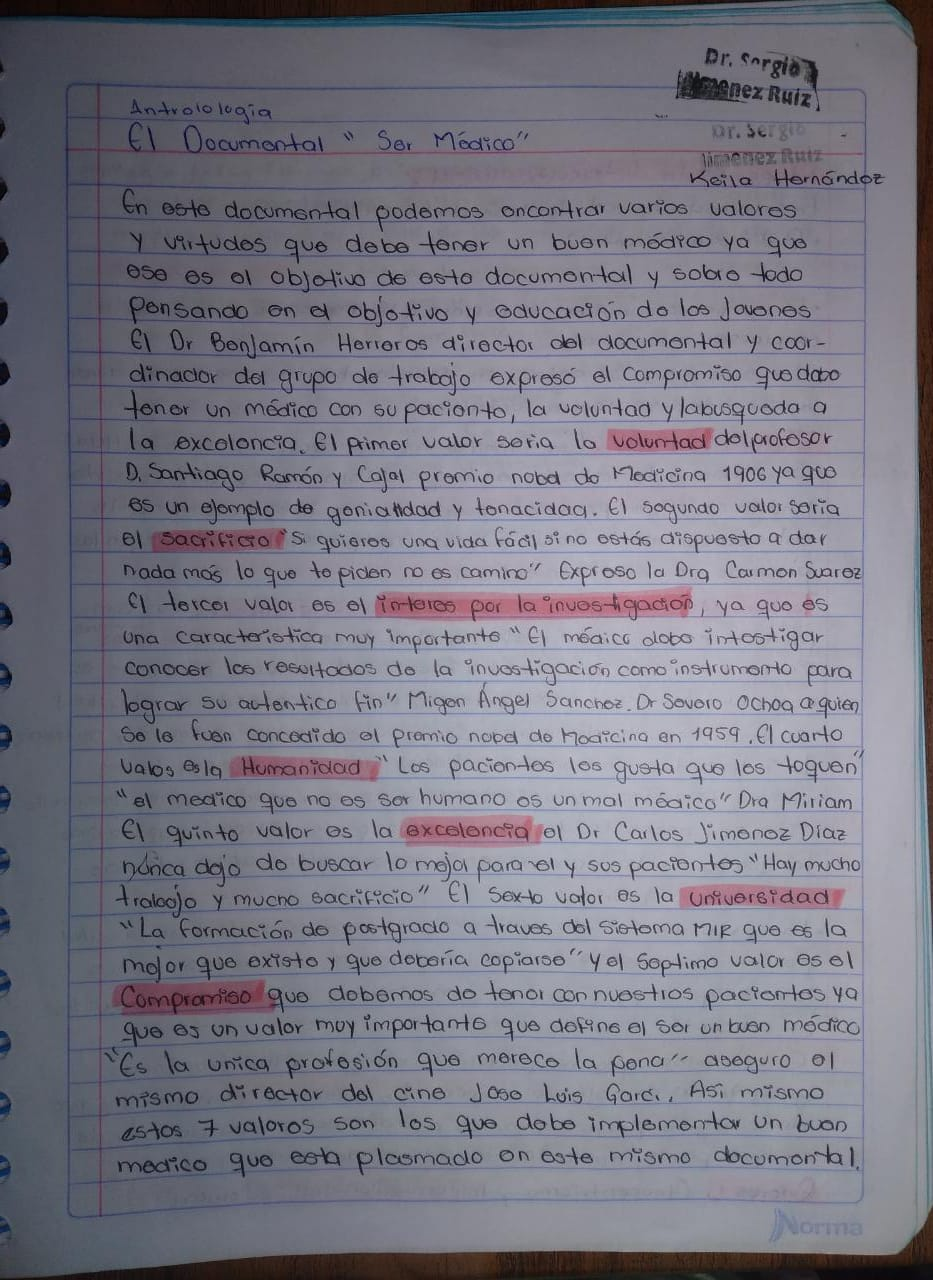 Dr. Sergio
Jimenez Ruiz
Dr. Sergio
Jimenez Ruiz
Antrolología
El Documental " Ser Médico"
Keila Hernández
En este documental podemos encontrar varios valores
y virtudes que debe tener un buen médico ya que
ese es el objetivo de este documental y sobre todo
pensando en el objetivo y educación de los Jovenes
El Dr Benjamín Herreros director del documental y coor-
dinador del grupo de trabajo expresó el compromiso que debe
tener un médico con su paciente, la voluntad y la busqueda a
la excelencia. El primer valor seria la voluntad del profesor
D. Santiago Ramón y Cajal premio nobel de Medicina 1906 ya que
es un ejemplo de genialidad y tenacidad. El segundo valor seria
el sacrificio "Si quieres una vida fácil si no estás dispuesto a dar
nada más lo que te piden no es camino" Expreso la Dra Carmen Suarez
El tercer valor es el interes por la investigación, ya que es
una caracteristica muy importante "El médico debe intestigar
conocer los resultados de la investigación como instrumento para
lograr su autentico fin" Migen Ángel Sanchez. Dr Severo Ochoa a quien
se le fuen concedido el premio nobel de Medicina en 1959. El cuarto
valos es la Humanidad "Los pacientes les gusta que les toquen"
"el medico que no es ser humano es un mal médico" Dra Miriam
El quinto valor es la excelencia el Dr Carlos Jimenez Díaz
núnca dejo de buscar lo mejor para el y sus pacientes "Hay mucho
trabajo y mucho sacrificio" El Sexto valor es la universidad
"La formación de postgrado a traves del Sistema MIR que es la
mejor que existe y que debería copiarse" y el Septimo valor es el
Compromiso que debemos de tener con nuestros pacientes ya
que es un valor muy importante que define el ser un buen médico
"Es la unica profesión que merece la pena" aseguro el
mismo director del cine Jose Luis Garci. Asi mismo
estos 7 valores son los que debe implementar un buen
medico que esta plasmado en este mismo documental.
Norma